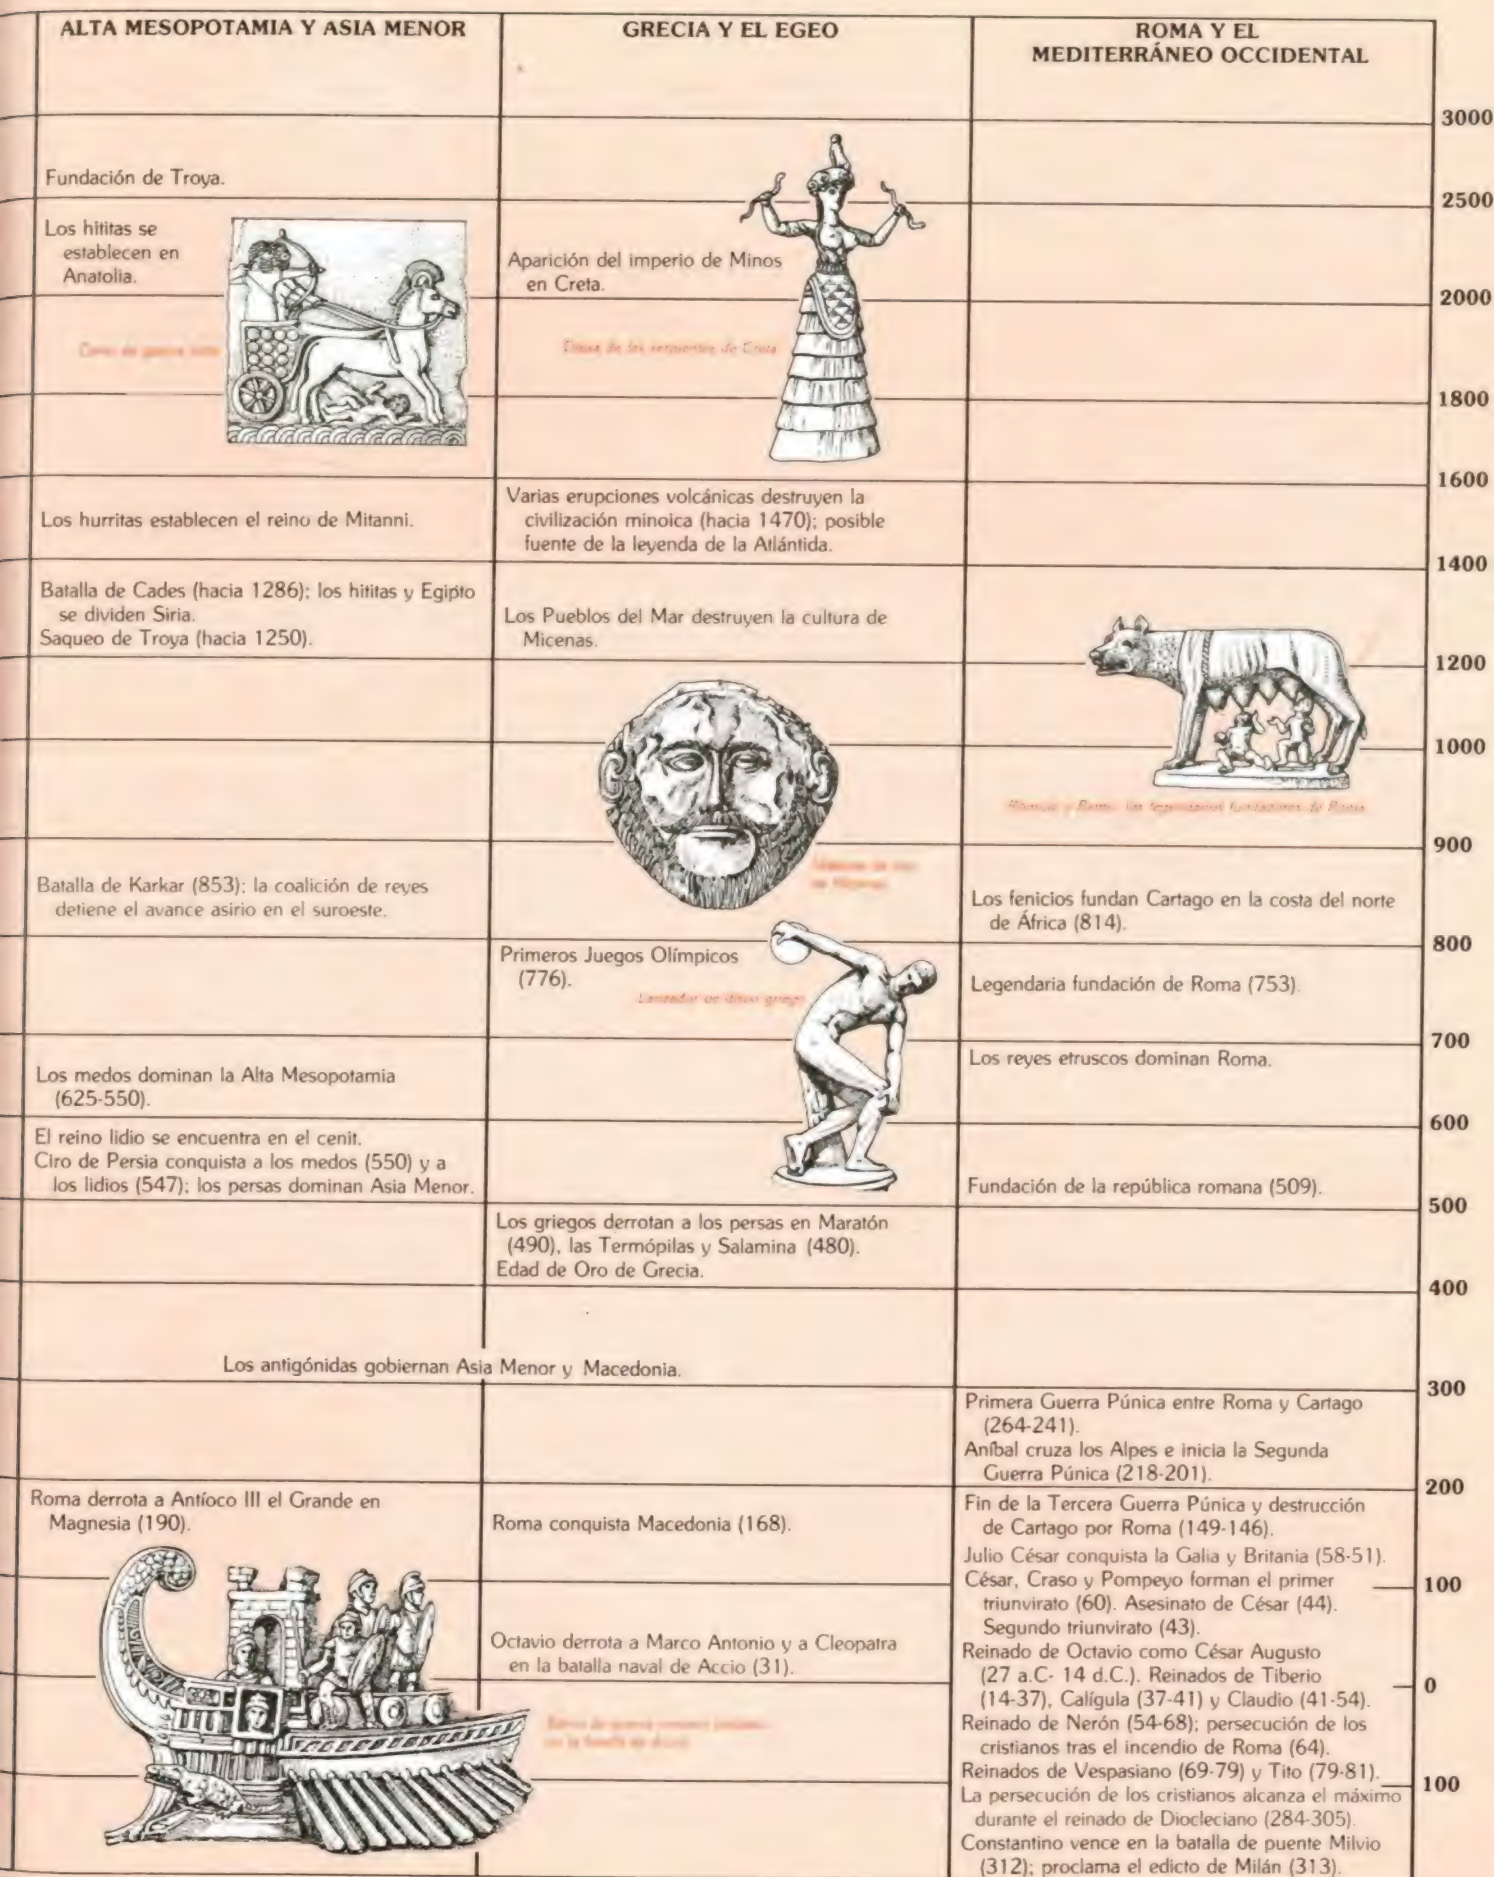 ALTA MESOPOTAMIA Y ASIA MENOR
Fundación de Troya.
Los hititas se
establecen en
Anatolia.
Los hurritas establecen el reino de Mitanni.
Batalla de Cades (hacia 1286); los hititas y Egipto
se dividen Siria.
Saqueo de Troya (hacia 1250).
Batalla de Karkar (853); la coalición de reyes
detiene el avance asirio en el suroeste.
Los medos dominan la Alta Mesopotamia
(625-550).
El reino lidio se encuentra en el cenit.
Ciro de Persia conquista a los medos (550) y a
los lidios (547); los persas dominan Asia Menor.
Los antigónidas gobiernan Asia Menor y Macedonia.
Roma derrota a Antíoco III el Grande en
Magnesia (190).
GRECIA Y EL EGEO
Aparición del imperio de Minos
en Creta.
de las serpientes de Creta
Varias erupciones volcánicas destruyen la
civilización minoica (hacia 1470); posible
fuente de la leyenda de la Atlántida.
Los Pueblos del Mar destruyen la cultura de
Micenas.
Primeros Juegos Olímpicos
(776).
Lanzador de disco griego
Los griegos derrotan a los persas en Maratón
(490), las Termópilas y Salamina (480).
Edad de Oro de Grecia.
Roma conquista Macedonia (168).
Octavio derrota a Marco Antonio y a Cleopatra
en la batalla naval de Accio (31).
ROMA Y EL
MEDITERRÁNEO OCCIDENTAL
Rómulo y Remo, los legendarios fundadores de Roma
Los fenicios fundan Cartago en la costa del norte
de África (814).
Legendaria fundación de Roma (753).
Los reyes etruscos dominan Roma.
Fundación de la república romana (509).
Primera Guerra Púnica entre Roma y Cartago
(264-241).
Aníbal cruza los Alpes e inicia la Segunda
Guerra Púnica (218-201).
Fin de la Tercera Guerra Púnica y destrucción
de Cartago por Roma (149-146).
Julio César conquista la Galia y Britania (58-51).
César, Craso y Pompeyo forman el primer
triunvirato (60). Asesinato de César (44).
Segundo triunvirato (43).
Reinado de Octavio como César Augusto
(27 a.C- 14 d.C.). Reinados de Tiberio
(14-37), Calígula (37-41) y Claudio (41-54).
Reinado de Nerón (54-68); persecución de los
cristianos tras el incendio de Roma (64).
Reinados de Vespasiano (69-79) y Tito (79-81).
La persecución de los cristianos alcanza el máximo
durante el reinado de Diocleciano (284-305).
Constantino vence en la batalla de puente Milvio
(312); proclama el edicto de Milán (313).
3000
2500
2000
1800
1600
1400
1200
1000
900
800
700
600
500
400
300
200
100
0
100